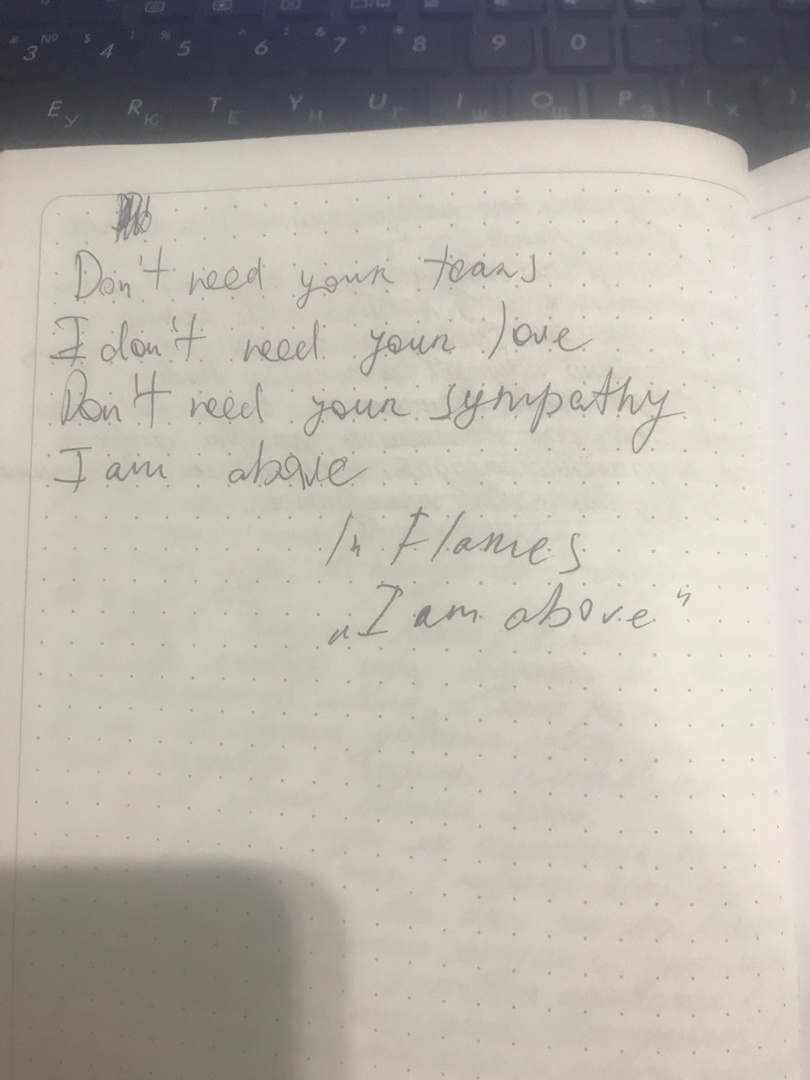 3 № $ 4 ; % 5 ^ 6 : & 7 ? * 8 9 0
E У R К T Е Y Н U Г I Ш O Щ P З [ Х
Don't need your tears
I don't need your love
Don't need your sympathy
I am above
In Flames
„I am above"